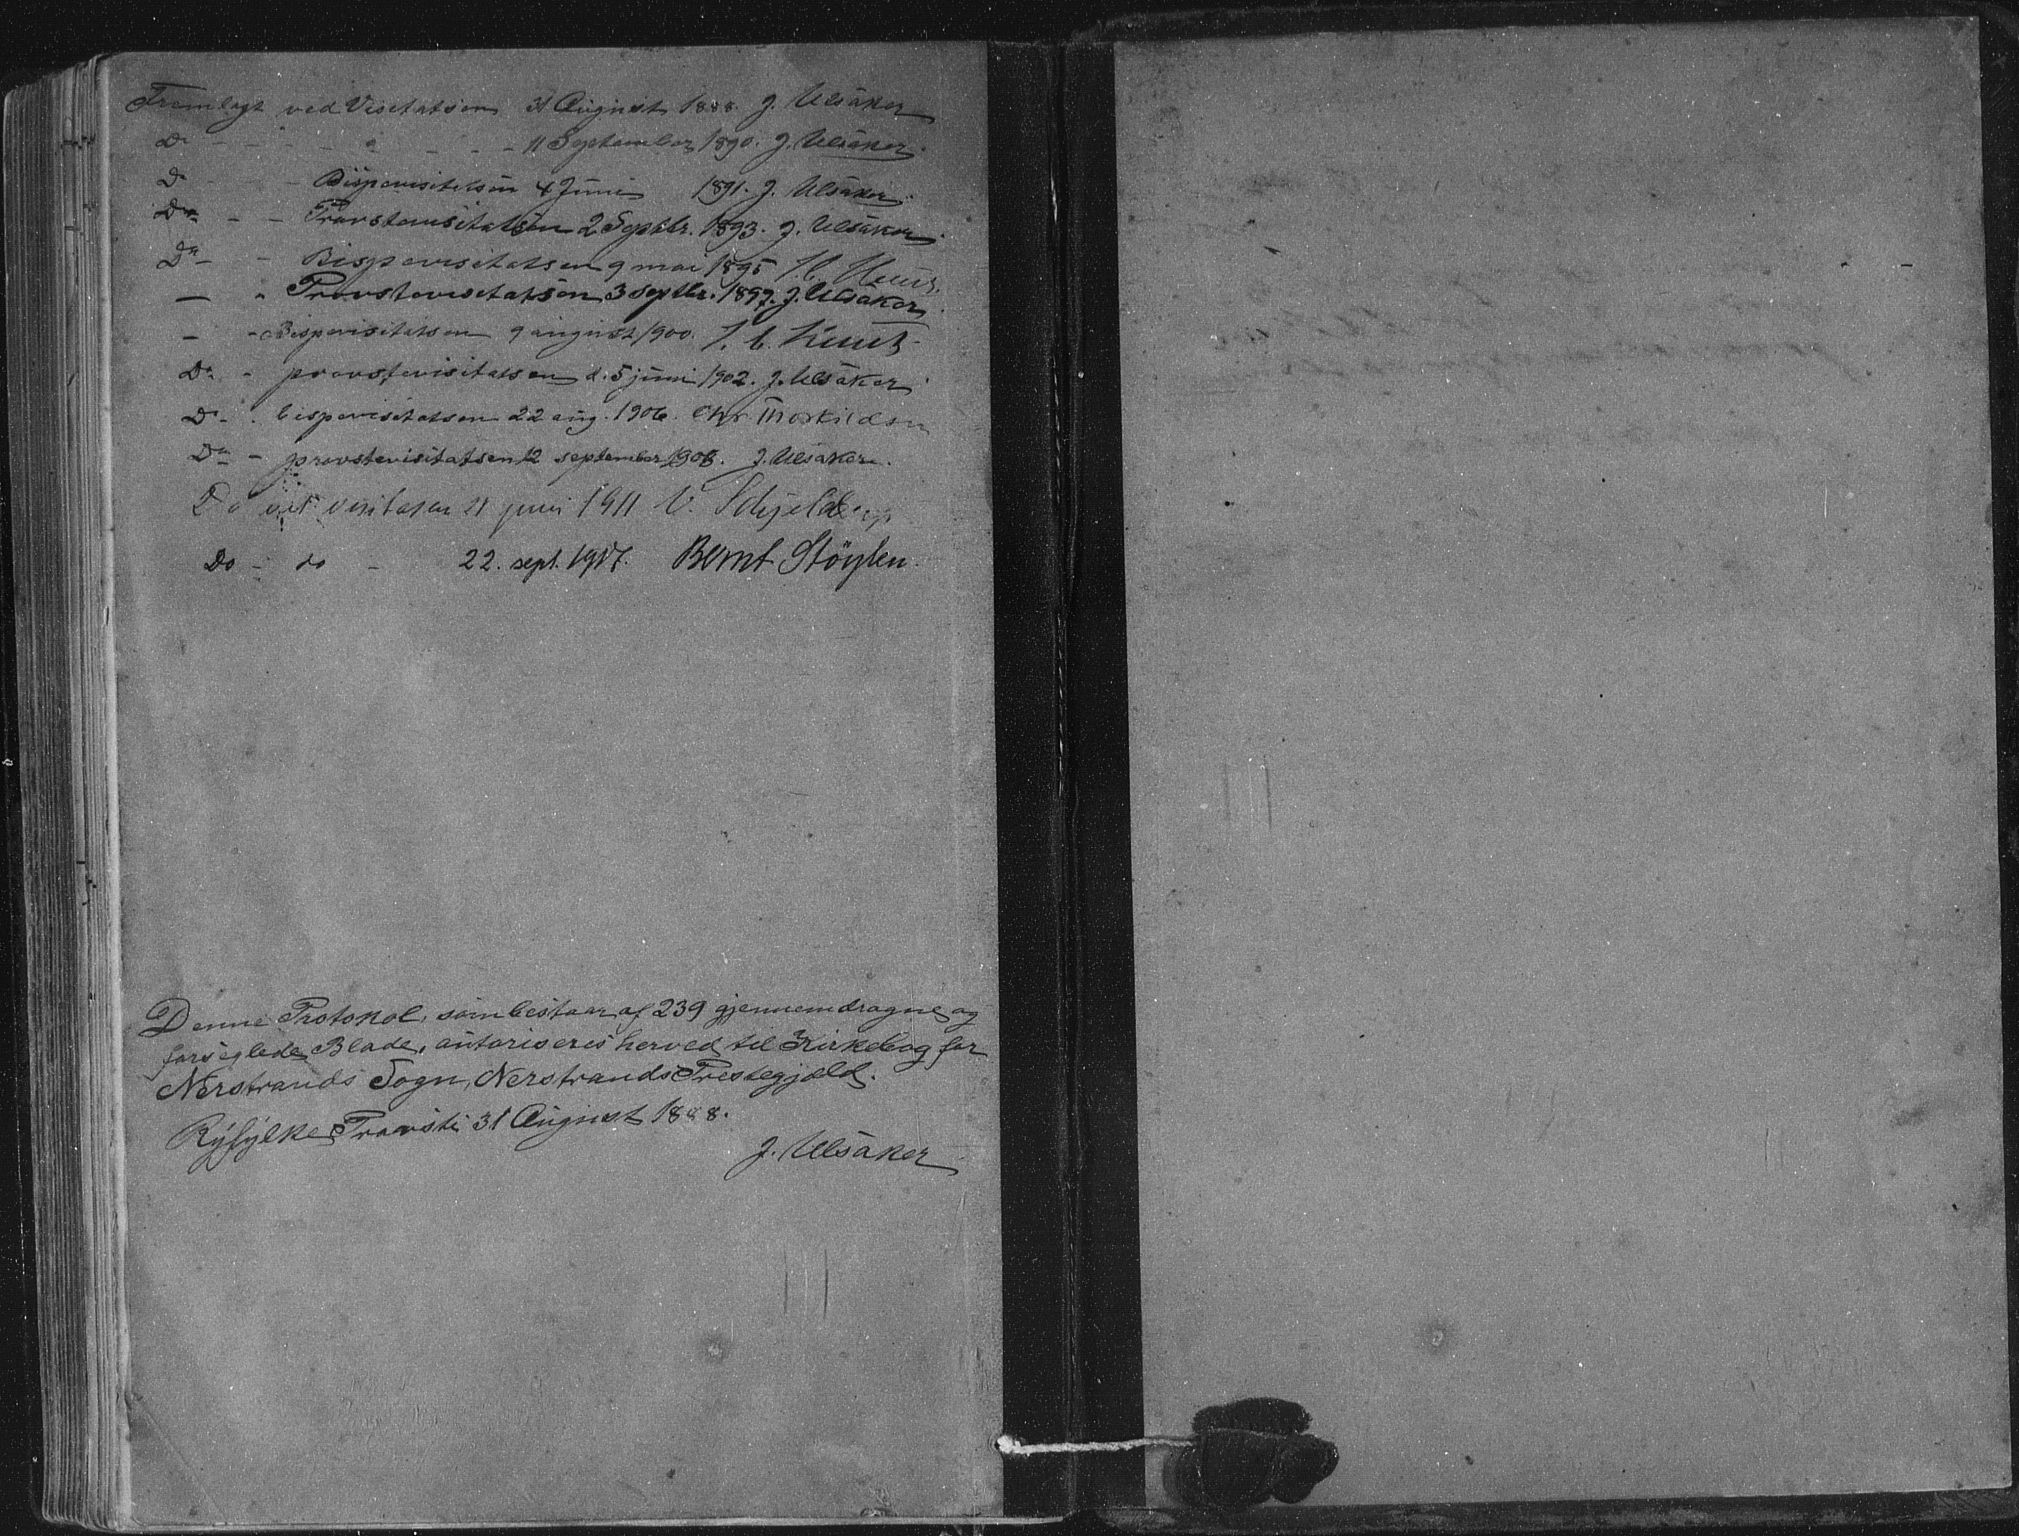 Fremlagt ved Visitatsen 31 August 1888. J. Ulsåker
Do - - - " - - - 11 September 1890. J. Ulsåker.
Do - - Bispevisitatsen 4 Juni 1891. J. Ulsåker.
Do - - Provstevisitatsen 2 Septbr. 1893. J. Ulsåker.
Do - - Bispevisitatsen 9 mai 1895
— " Provstevisitatsen 3 Septbr. 1897. J. Ulsåker.
- - Bispevisitatsen 9 august 1900.
Do - provstevisitatsen d. 5 juni 1902. J. Ulsåker.
Do - . bispevisitatsen 22 aug. 1906. Chr Thorkildsen
Do - provstevisitatsen 12 september 1908. J. Ulsåker.
Do ved visitasen 21 juni 1911 V. Schjelderup
Do - do - 22. sept. 1917. Bernt Støylen.
Denne Protokol, som bestaar af 239 gjennemdragne og
forseglede Blade, autoriseres herved til Kirkebog for
Nerstrands Sogn, Nerstrands Prestegjæld.
Ryfylke Provsti 31 August 1888.
J. Ulsåker